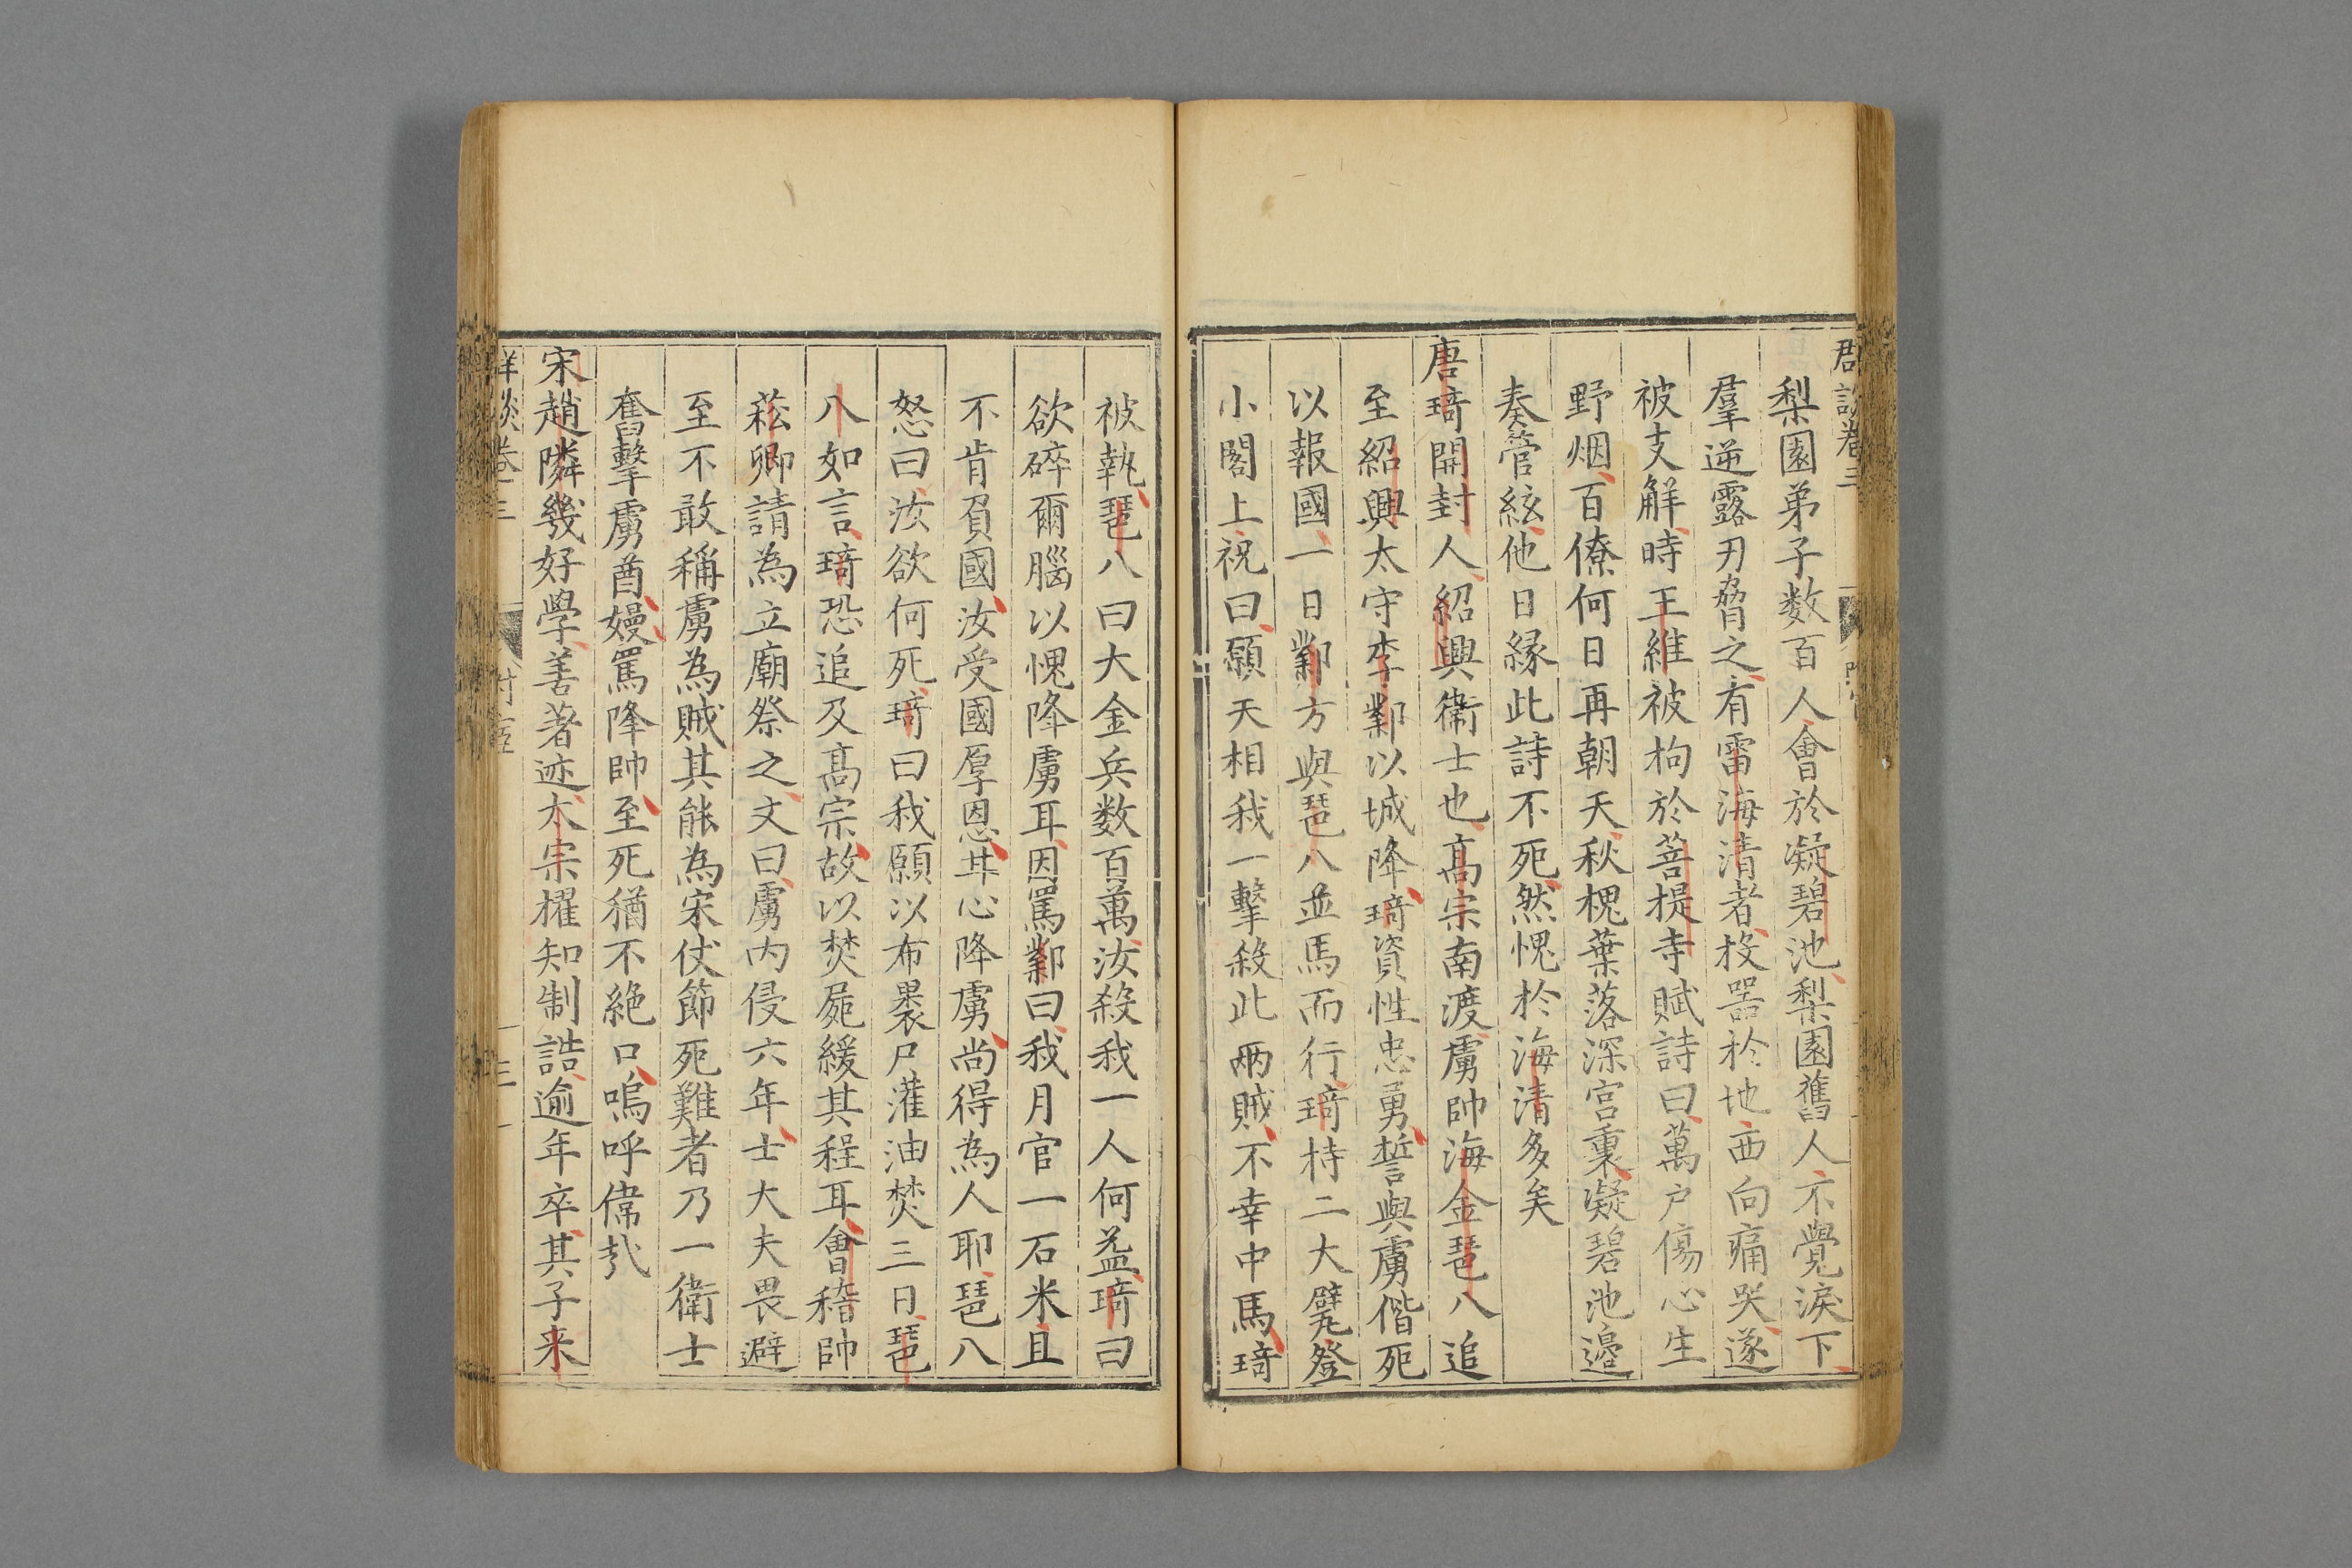 群談卷三
梨園弟子数百人會於凝碧池梨園舊人不覺淚下
羣逆露刃脅之有雷海清者投噐於地西向痛哭遂
被支解時王維被拘於菩提寺賦詩曰萬户傷心生
野烟百僚何日再朝天秋槐葉落深宫裏凝碧池邉
奏管絃他日縁此詩不死然愧於海清多矣
唐琦開封人紹興衛士也髙宗南渡虜帥海金琶八追
至紹興太守李鄴以城降琦資性忠勇誓與虜偕死
以報國一日鄴方與琶八並馬而行琦持二大甓登
小閣上祝曰願天相我一擊殺此兩賊不幸中馬琦
被執琶八曰大金兵数百萬汝殺我一人何益琦曰
欲碎爾腦以愧降虜耳因罵鄴曰我月官一石米且
不肯負國汝受國厚恩甘心降虜尚得為人耶琶八
怒曰汝欲何死琦曰我願以布褁尸灌油焚三日琶
八如言琦恐追及髙宗故以焚屍緩其程耳會稽帥
菘卿請為立廟祭之文曰虜内侵六年士大夫畏避
至不敢稱虜為賊其能為宋仗節死難者乃一衛士
奮擊虜酋嫚罵降帥至死猶不絶口嗚呼偉哉
宋趙隣幾好學善著述太宗櫂知制誥逾年卒其子来
卷三
三